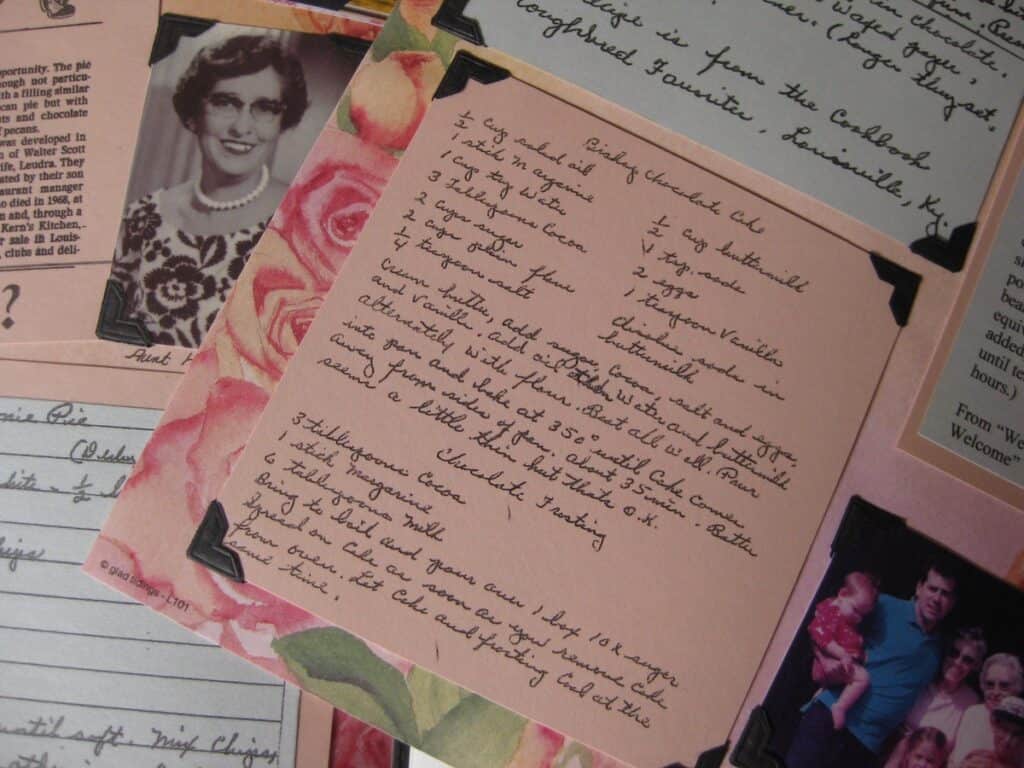 pportunity. The pie
ough not particu-
th a filling similar
can pie but with
ts and chocolate
f pecans.
was developed in
n of Walter Scott
ife, Leudra. They
ated by their son
aurant manager
o died in 1968, at
n and, through a
Kern's Kitchen,.
r sale in Louis-
, clubs and deli-
?
Aunt H
in chocolate.
waxed paper,
(longer thugset.
is from the Cookbook
Favorites, Louisville, Ky.
Bishop Chocolate Cake
½ cup salad oil
1 stick Margarine
1 cup tap Water
3 Tablespoons Cocoa
2 Cups sugar
2 cups plain flour
¼ teaspoon salt
½ cup buttermilk
½ tsp. soda
2 eggs
1 teaspoon Vanilla
dissolve soda in
buttermilk
Cream butter, add sugar, Cocoa, salt and eggs,
and Vanilla. Add oil, then Water and buttermilk
alternately with flour. Beat all Well. Pour
into pan and bake at 350° until Cake comes
away from sides of pan. About 35 min. Batter
seems a little thin but that's O.K.
Chocolate Frosting
3 tablespoons Cocoa
1 stick Margarine
6 tablespoons Milk
Bring to boil and pour over 1 box 10X sugar.
Spread on Cake as soon as you remove Cake
from oven. Let Cake and frosting Cool at the
same time.
© glad tidings - L101
nie Pie
hips
until soft. Mix Chips,
po
bea
equiv
added
until te
hours.)
From "We
Welcome"